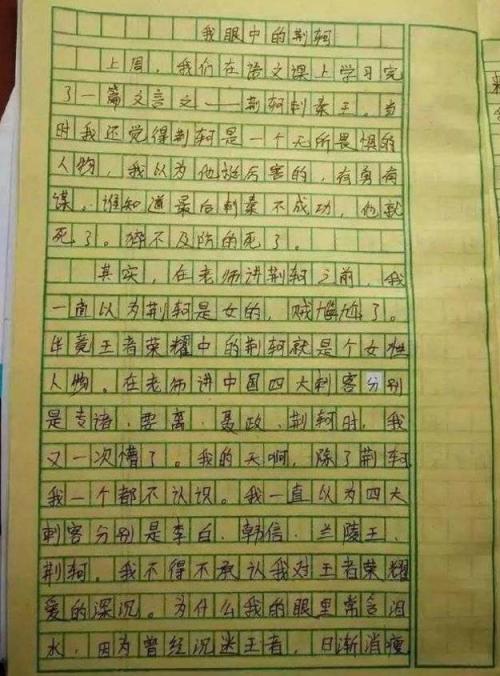 我眼中的荆轲
上周，我们在语文课上学习完
了一篇文言文——荆轲刺秦王。当
时我还觉得荆轲是一个无所畏惧的
人物，我以为他挺厉害的，有勇有
谋，谁知道最后刺秦不成功，他就
死了。猝不及防的死了。
其实，在老师讲荆轲之前，我
一直以为荆轲是女的，贼尴尬了。
毕竟王者荣耀中的荆轲就是个女性
人物。在老师讲中国四大刺客分别
是专诸、要离、聂政、荆轲时，我
又一次懵了。我的天啊，除了荆轲
我一个都不认识。我一直以为四大
刺客分别是李白、韩信、兰陵王、
荆轲。我不得不承认我对王者荣耀
爱的深沉。为什么我的眼里常含泪
水，因为曾经沉迷王者，日渐消瘦